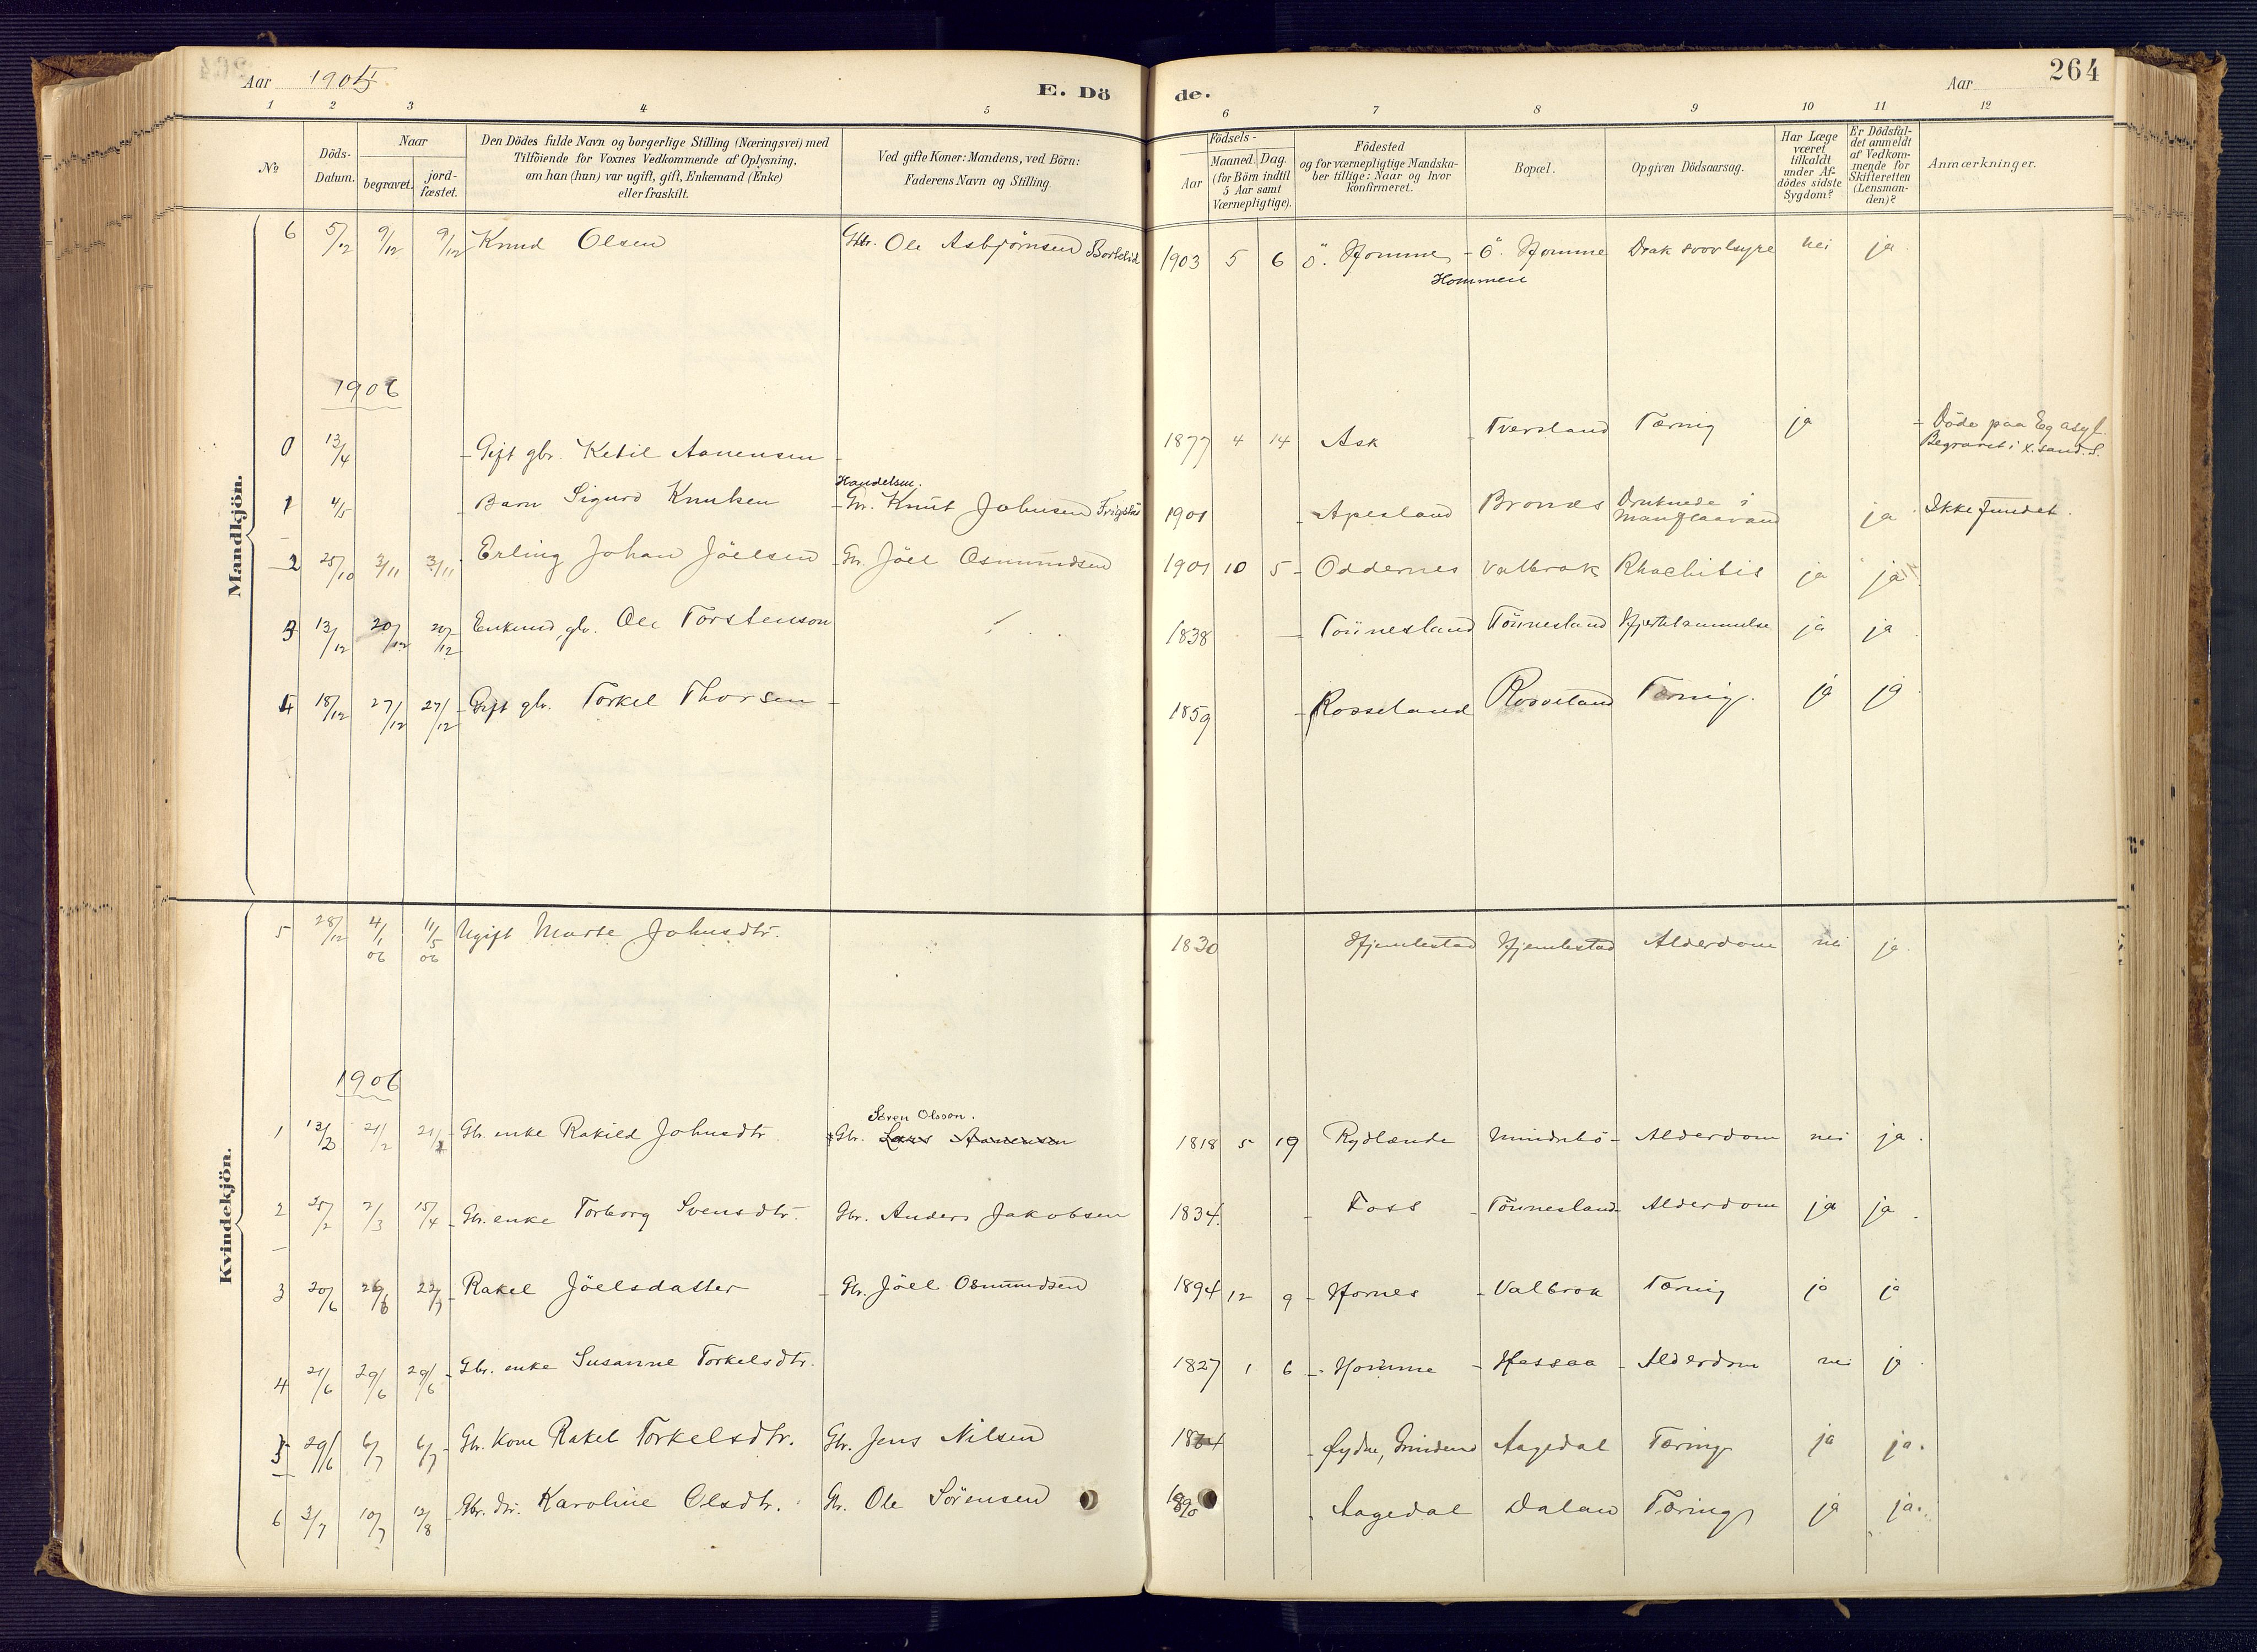 264
Aar 1905
E. Dö de.
Aar
1 2 3 4 5 6 7 8 9 10 11 12
No
Döds-Datum.
Naar
begravet.
jord-fæstet.
Den Dödes fulde Navn og borgerlige Stilling (Næringsvei) med
Tilföiende for Voxnes Vedkommende af Oplysning,
om han (hun) var ugift, gift, Enkemand (Enke)
eller fraskilt.
Ved gifte Koner: Mandens, ved Börn:
Faderens Navn og Stilling.
Födsels-
Aar
Maaned. Dag.
(for Börn indtil
5 Aar samt
Værnepligtige).
Födested
og for værnepligtige Mandska-
ber tillige: Naar og hvor
konfirmeret.
Bopæl.
Opgiven Dödsaarsag.
Har Læge
været
tilkaldt
under Af-
dödes sidste
Sygdom?
Er Dödsfal-
det anmeldt
af Vedkom-
mende for
Skifteretten
(Lensman-
den)?
Anmærkninger.
Mandkjön.
6 5/12 9/12 9/12 Knud Olsen Gbr. Ole Asbjørnsen 1903 5 6 Ö. Homme Ö. Homme Drak svovlsyre nei ja
Hommen
1906
0 13/4 Gift gbr. Ketil Aanensen 1877 4 14 Ask Tversland Tæring ja Döde paa Eg asyl.
Begravet i X.sand. S.
Handelsm.
1 4/5 Barn Sigurd Knutsen Gr. Knut Johnsen 1901 Apesland Bronæs Druknede i ja Ikke fundet.
2 25/10 3/11 3/11 Erling Johan Jöelsen Gr. Jöel Osmundsen 1901 10 5 Oddernes Valbrok Rhachitis ja ja
3 13/12 20/12 20/12 Enkemd, gbr. Ole Torstenson 1838 Tönnesland Tönnesland Hjertelammelse ja ja
4 18/12 27/12 27/12 Gift gbr. Torkel Thorsen 1859 Rosseland Rosseland Tæring. ja ja
Kvindekjön.
5 28/12 4/1 06 11/5 06 Ugift Marte Johnsdtr. 1830 Hjemlestad Hjemlestad Alderdom nei ja
1906
Søren Olsson.
1 13/2 21/2 21/2 Gbr. enke Rakild Johnsdtr. Gbr. Lars Aanenson 1818 5 19 Rydlænde Mindrebö Alderdom nei ja.
2 25/2 2/3 15/4 Gbr. enke Torborg Svensdtr. Gbr. Anders Jakobsen 1834. Foss Tönnesland Alderdom ja ja
3 20/6 26/6 22/7 Rakel Jöelsdatter Gbr. Jöel Osmundsen 1894 12 9 Hornes Valbrok Tæring ja ja
4 21/6 29/6 29/6 Gbr. enke Susanne Torkelsdtr. 1827 1 6 Homme Hessaa Alderdom nei ja
5 29/6 6/7 6/7 Gbr. Kone Rakel Torkelsdtr. Gbr. Jens Nilsen Aagedal Tæring ja ja.
6 3/7 10/7 12/8 Gbr. dr. Karoline Olsdtr. Gbr. Ole Sörensen 1890 Aagedal Dalan Tæring ja ja.